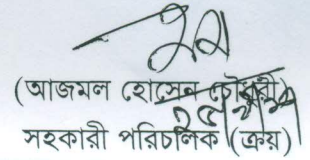 (আজমল হোসেন চৌধুরী)
সহকারী পরিচালক (ক্রয়)